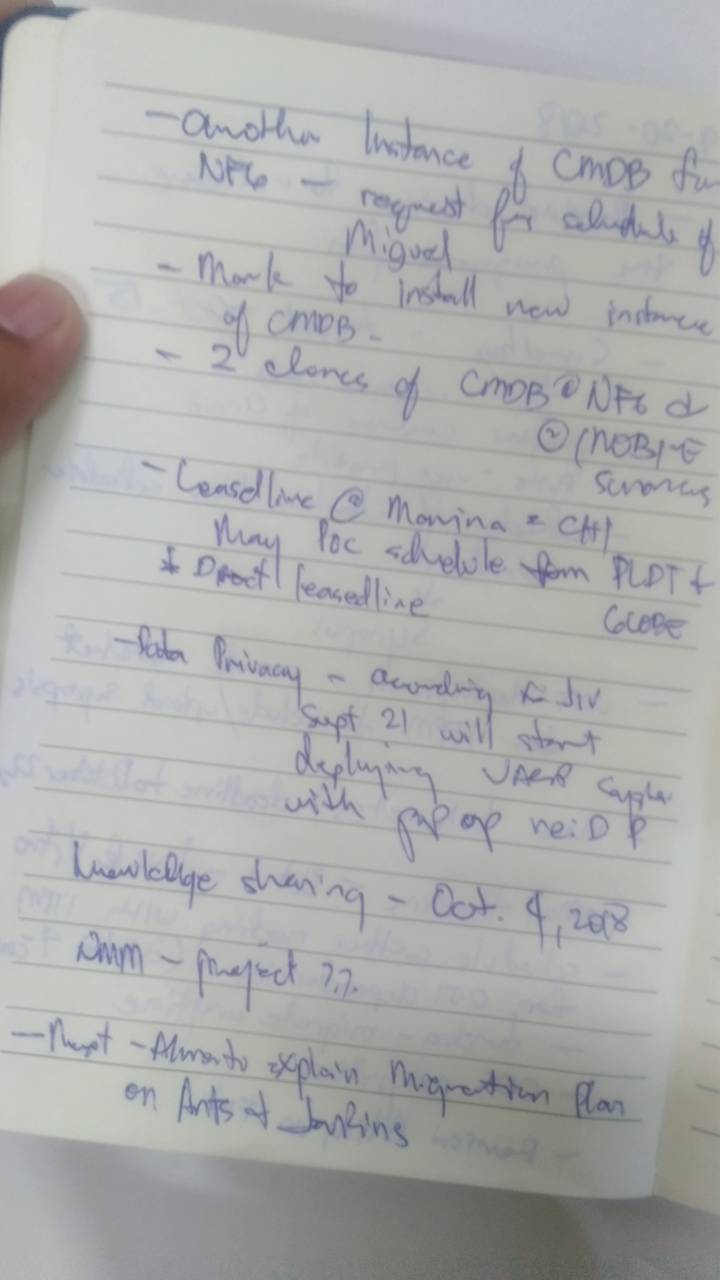 - another Instance of CMDB for
NF6 - request for schedule of
Miguel
- Mark to install new instance
of CMDB -
- 2 clones of CMDB @ NF6 &
Services
- Leasedline @ Marina = CH1
May POC schedule from PLDT &
GLOBE
* Direct leasedline
- Data Privacy - according to Jiv
Sept 21 will start
deploying
with pop up re: DP
Knowledge sharing - Oct. 4, 2018
DMM - project ??
explain Migration Plan
on Ants & Jenkins